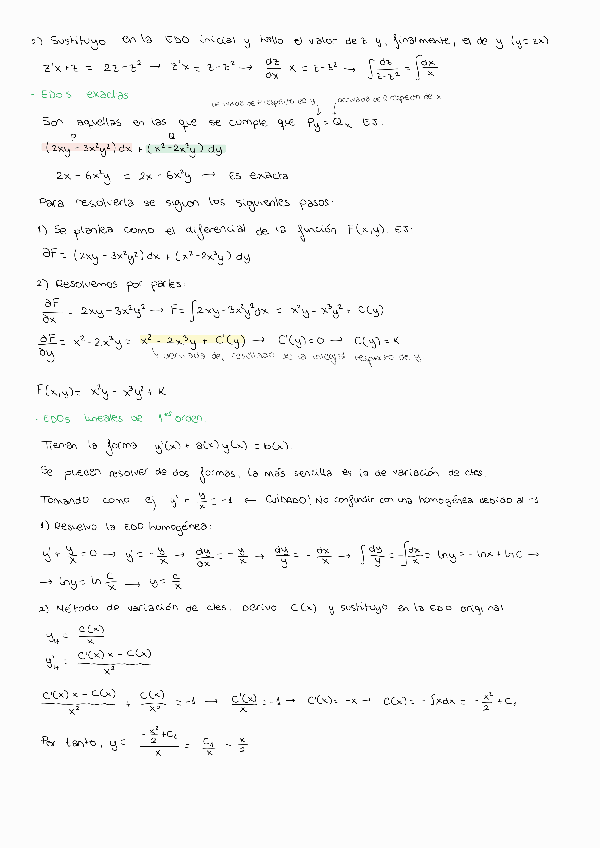 2) Sustituyo en la EDO inicial y hallo el valor de z y, finalmente, el de y (y=zx)
z'x+z = 2z-z² → z'x = z-z² → dz/dx x = z-z² → ∫dz/z-z² = ∫dx/x
- EDOs exactas
derivada de P respecto de y derivada de Q respecto de x
Son aquellas en las que se cumple que Py=Qx EJ:
P Q
(2xy-3x²y²)dx + (x²-2x³y)dy
2x-6x²y = 2x-6x²y → Es exacta
Para resolverla se siguen los siguientes pasos:
1) Se plantea como el diferencial de la función F(x,y). EJ:
∂F = (2xy-3x²y²)dx + (x²-2x³y)dy
2) Resolvemos por partes:
∂F/∂x = 2xy-3x²y² → F=∫2xy-3x²y²dx = x²y-x³y²+C(y)
∂F/∂y = x²-2x³y = x²-2x³y+C'(y) → C'(y)=0 → C(y)=K
derivada del resultado de la integral respecto de y
F(x,y)= x²y-x³y²+K
- EDOs lineales de 1er orden
Tienen la forma y'(x)+a(x)y(x)=b(x)
Se pueden resolver de dos formas, la más sencilla es la de variación de ctes.
Tomando como ej y'+y/x=-1 ← CUIDADO! No confundir con una homogénea debido al -1
1) Resuelvo la EDO homogénea:
y'+y/x=0 → y'=-y/x → dy/dx=-y/x → dy/y=-dx/x → ∫dy/y=-∫dx/x = lny=-lnx+lnC →
→ lny=ln C/x → y=C/x
2) Método de variación de ctes. Derivo C(x) y sustituyo en la EDO original
yH = C(x)/x
y'H = C'(x)x-C(x)/x²
C'(x)x-C(x)/x² + C(x)/x² = -1 → C'(x)/x = -1 → C'(x)=-x → C(x)=-∫xdx = -x²/2+C₁
Por tanto, y = -x²/2+C₁/x = C₁/x - x/2